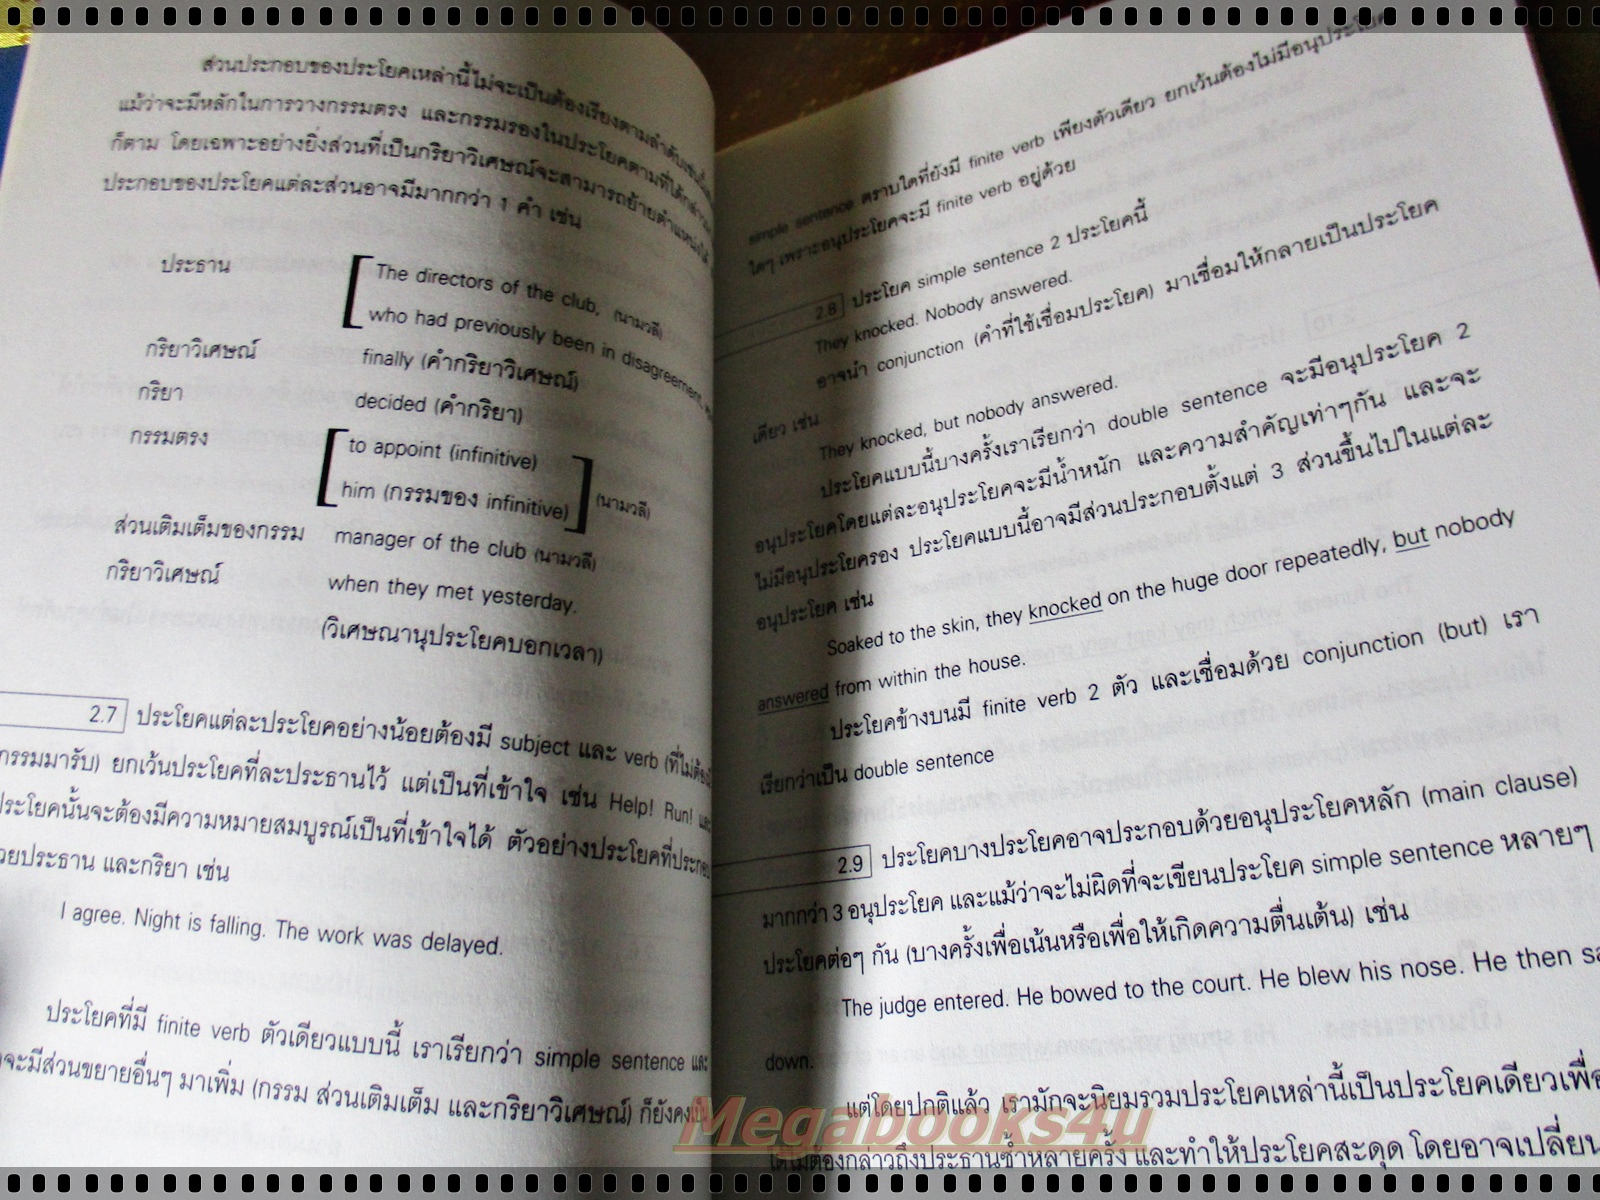 ส่วนประกอบของประโยคเหล่านี้ไม่จะเป็นต้องเรียงตามลำดับเช่นนี้
แม้ว่าจะมีหลักในการวางกรรมตรง และกรรมรองในประโยคตามที่ได้กล่าว
ก็ตาม โดยเฉพาะอย่างยิ่งส่วนที่เป็นกริยาวิเศษณ์จะสามารถย้ายตำแหน่งได้
ประกอบของประโยคแต่ละส่วนอาจมีมากกว่า 1 คำ เช่น
ประธาน The directors of the club, (นามวลี)
who had previously been in disagreement,
กริยาวิเศษณ์ finally (คำกริยาวิเศษณ์)
กริยา decided (คำกริยา)
กรรมตรง to appoint (infinitive)
him (กรรมของ infinitive) (นามวลี)
ส่วนเติมเต็มของกรรม manager of the club (นามวลี)
กริยาวิเศษณ์ when they met yesterday.
(วิเศษณานุประโยคบอกเวลา)
2.7 ประโยคแต่ละประโยคอย่างน้อยต้องมี subject และ verb (ที่ไม่ต้องมี
กรรมมารับ) ยกเว้นประโยคที่ละประธานไว้ แต่เป็นที่เข้าใจ เช่น Help! Run! และ
ประโยคนั้นจะต้องมีความหมายสมบูรณ์เป็นที่เข้าใจได้ ตัวอย่างประโยคที่ประกอบ
วยประธาน และกริยา เช่น
I agree. Night is falling. The work was delayed.
ประโยคที่มี finite verb ตัวเดียวแบบนี้ เราเรียกว่า simple sentence และ
จะมีส่วนขยายอื่นๆ มาเพิ่ม (กรรม ส่วนเติมเต็ม และกริยาวิเศษณ์) ก็ยังคงเป็น
simple sentence ตราบใดที่ยังมี finite verb เพียงตัวเดียว ยกเว้นต้องไม่มีอนุประโยค
ใดๆ เพราะอนุประโยคจะมี finite verb อยู่ด้วย
2.8 ประโยค simple sentence 2 ประโยคนี้
They knocked. Nobody answered.
อาจนำ conjunction (คำที่ใช้เชื่อมประโยค) มาเชื่อมให้กลายเป็นประโยค
เดียว เช่น
They knocked, but nobody answered.
ประโยคแบบนี้บางครั้งเราเรียกว่า double sentence จะมีอนุประโยค 2
อนุประโยคโดยแต่ละอนุประโยคจะมีน้ำหนัก และความสำคัญเท่าๆกัน และจะ
ไม่มีอนุประโยครอง ประโยคแบบนี้อาจมีส่วนประกอบตั้งแต่ 3 ส่วนขึ้นไปในแต่ละ
อนุประโยค เช่น
Soaked to the skin, they knocked on the huge door repeatedly, but nobody
answered from within the house.
ประโยคข้างบนมี finite verb 2 ตัว และเชื่อมด้วย conjunction (but) เรา
เรียกว่าเป็น double sentence
2.9 ประโยคบางประโยคอาจประกอบด้วยอนุประโยคหลัก (main clause)
มากกว่า 3 อนุประโยค และแม้ว่าจะไม่ผิดที่จะเขียนประโยค simple sentence หลายๆ
ประโยคต่อๆ กัน (บางครั้งเพื่อเน้นหรือเพื่อให้เกิดความตื่นเต้น) เช่น
The judge entered. He bowed to the court. He blew his nose. He then sa
down.
แต่โดยปกติแล้ว เรามักจะนิยมรวมประโยคเหล่านี้เป็นประโยคเดียวเพื่อ
ได้ไม่ต้องกล่าวถึงประธานซ้ำหลายครั้ง และทำให้ประโยคสะดุด โดยอาจเปลี่ยน
Megabooks4u